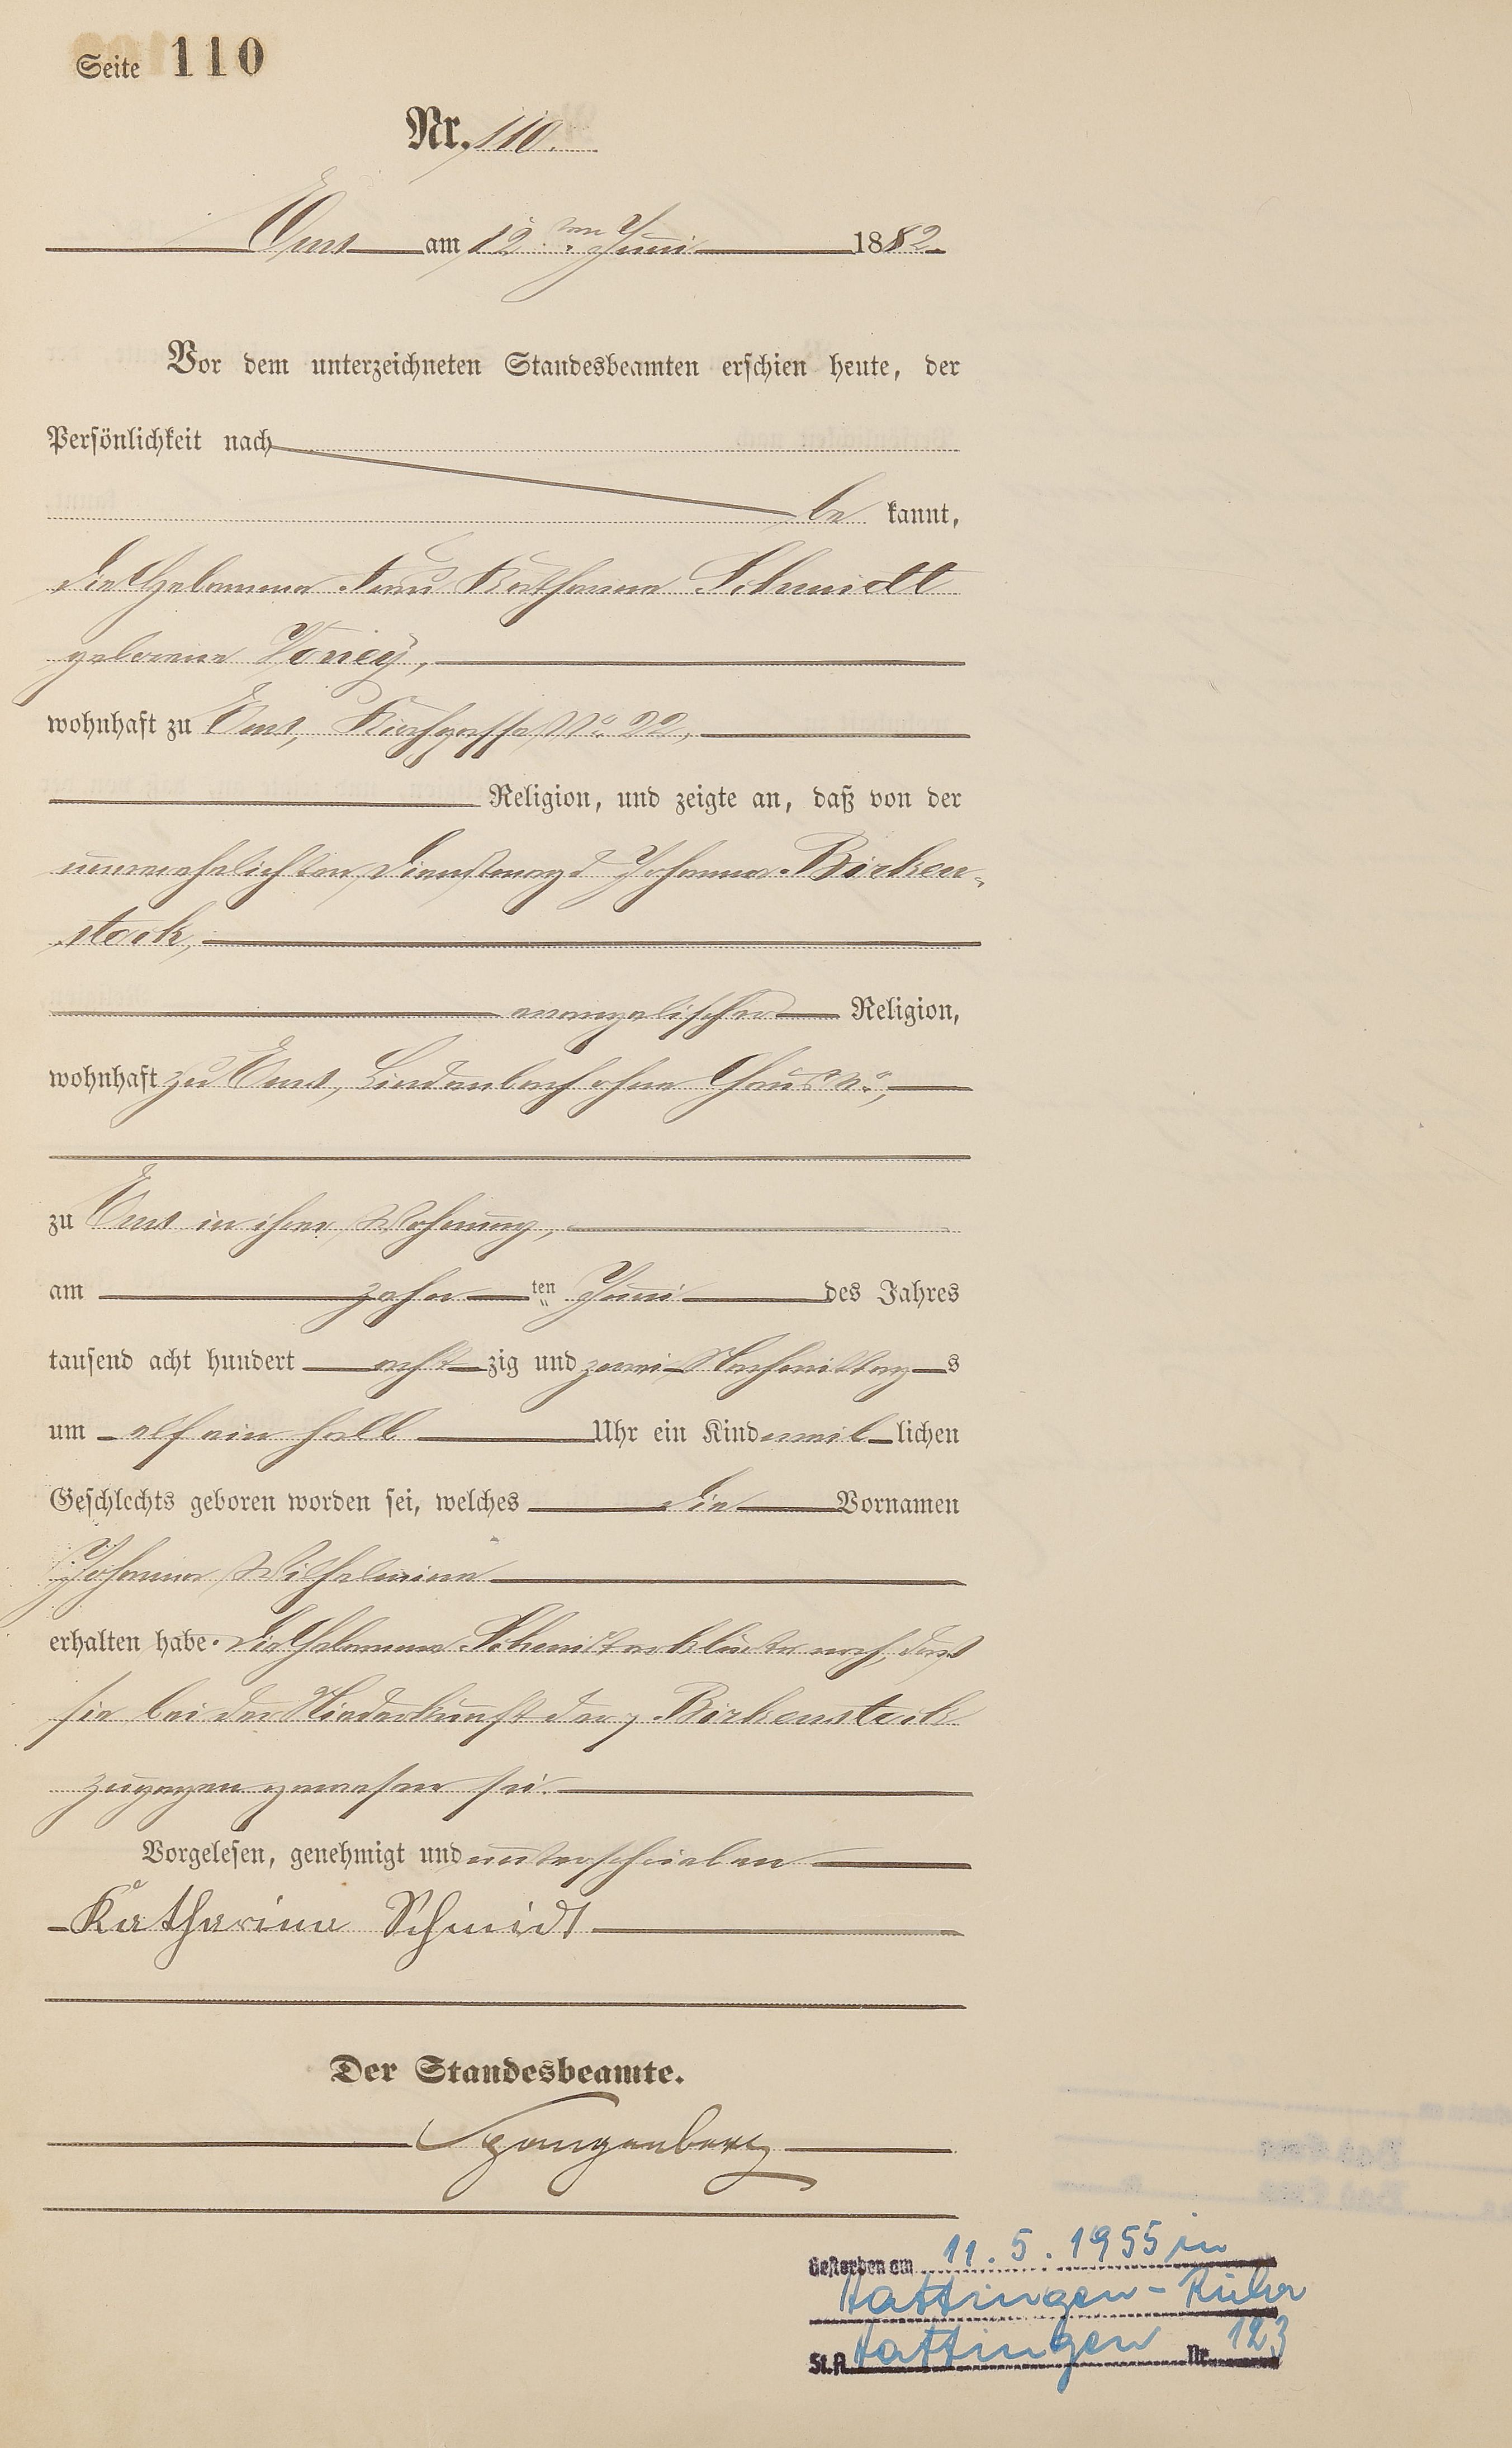 Seite 110
Nr. 110.
Ems am 12ten Juni 1882.
Vor dem unterzeichneten Standesbeamten erschien heute, der
Persönlichkeit nach
be kannt,
die Hebamme Frau Katharina Schmidt
geborene
wohnhaft zu Ems, Kirchgasse No. 22,
Religion, und zeigte an, daß von der
unverehelichten Dienstmagd Johanna Birken-
stock,
evangelischer Religion,
wohnhaft zu Ems, Lindenbach ohne Haus No.,
zu Ems in ihrer Wohnung,
am zehn ten Juni des Jahres
tausend acht hundert acht zig und zwei Nachmittag s
um elf ein halb Uhr ein Kind weib lichen
Geschlechts geboren worden sei, welches die Vornamen
Johanna Wilhelmine
erhalten habe. Die Hebamme Schmidt erklärte noch, daß
sie bei der Niederkunft der Birkenstock
zugegen gewesen sei.
Vorgelesen, genehmigt und unterschrieben
Katharina Schmidt
Der Standesbeamte.
Spangenberg
Gestorben am 11.5.1955 in
Hattingen-Ruhr
St.A. Hattingen Nr. 123